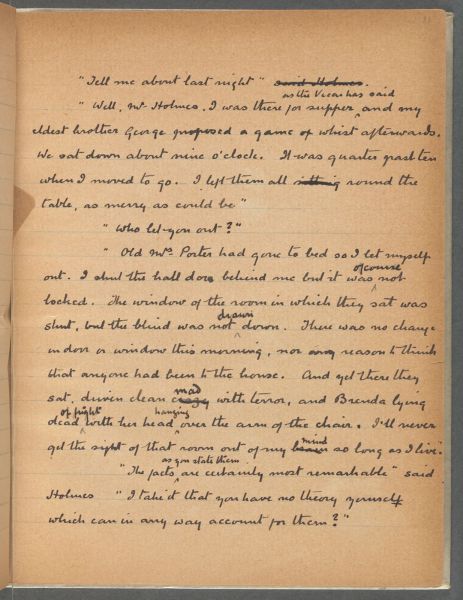 "Tell me about last night" said Holmes.
as the Vicar has said
"Well, Mr Holmes, I was there for supper, and my
eldest brother George proposed a game of whist afterwards.
We sat down about nine o'clock. It was quarter past ten
when I moved to go. I left them all sitting round the
table, as merry as could be"
"Who let you out?"
"Old Mrs. Porter had gone to bed so I let myself
of course
out. I shut the hall door behind me but it was not
locked. The window of the room in which they sat was
drawn
shut, but the blind was not down. There was no change
in door or window this morning, nor any reason to think
that anyone had been to the house. And yet there they
mad
sat, driven clean crazy with terror, and Brenda lying
of fright hanging
dead with her head over the arm of the chair. I'll never
mind
get the sight of that room out of my brain so long as I live".
as you state them
"The facts are certainly most remarkable" said
Holmes "I take it that you have no theory yourself
which can in any way account for them?"